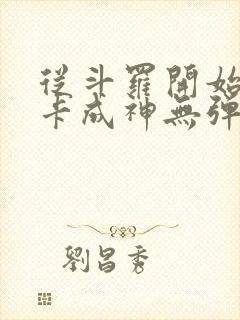 從斗羅開始
卡成神無彈
劉昌秀